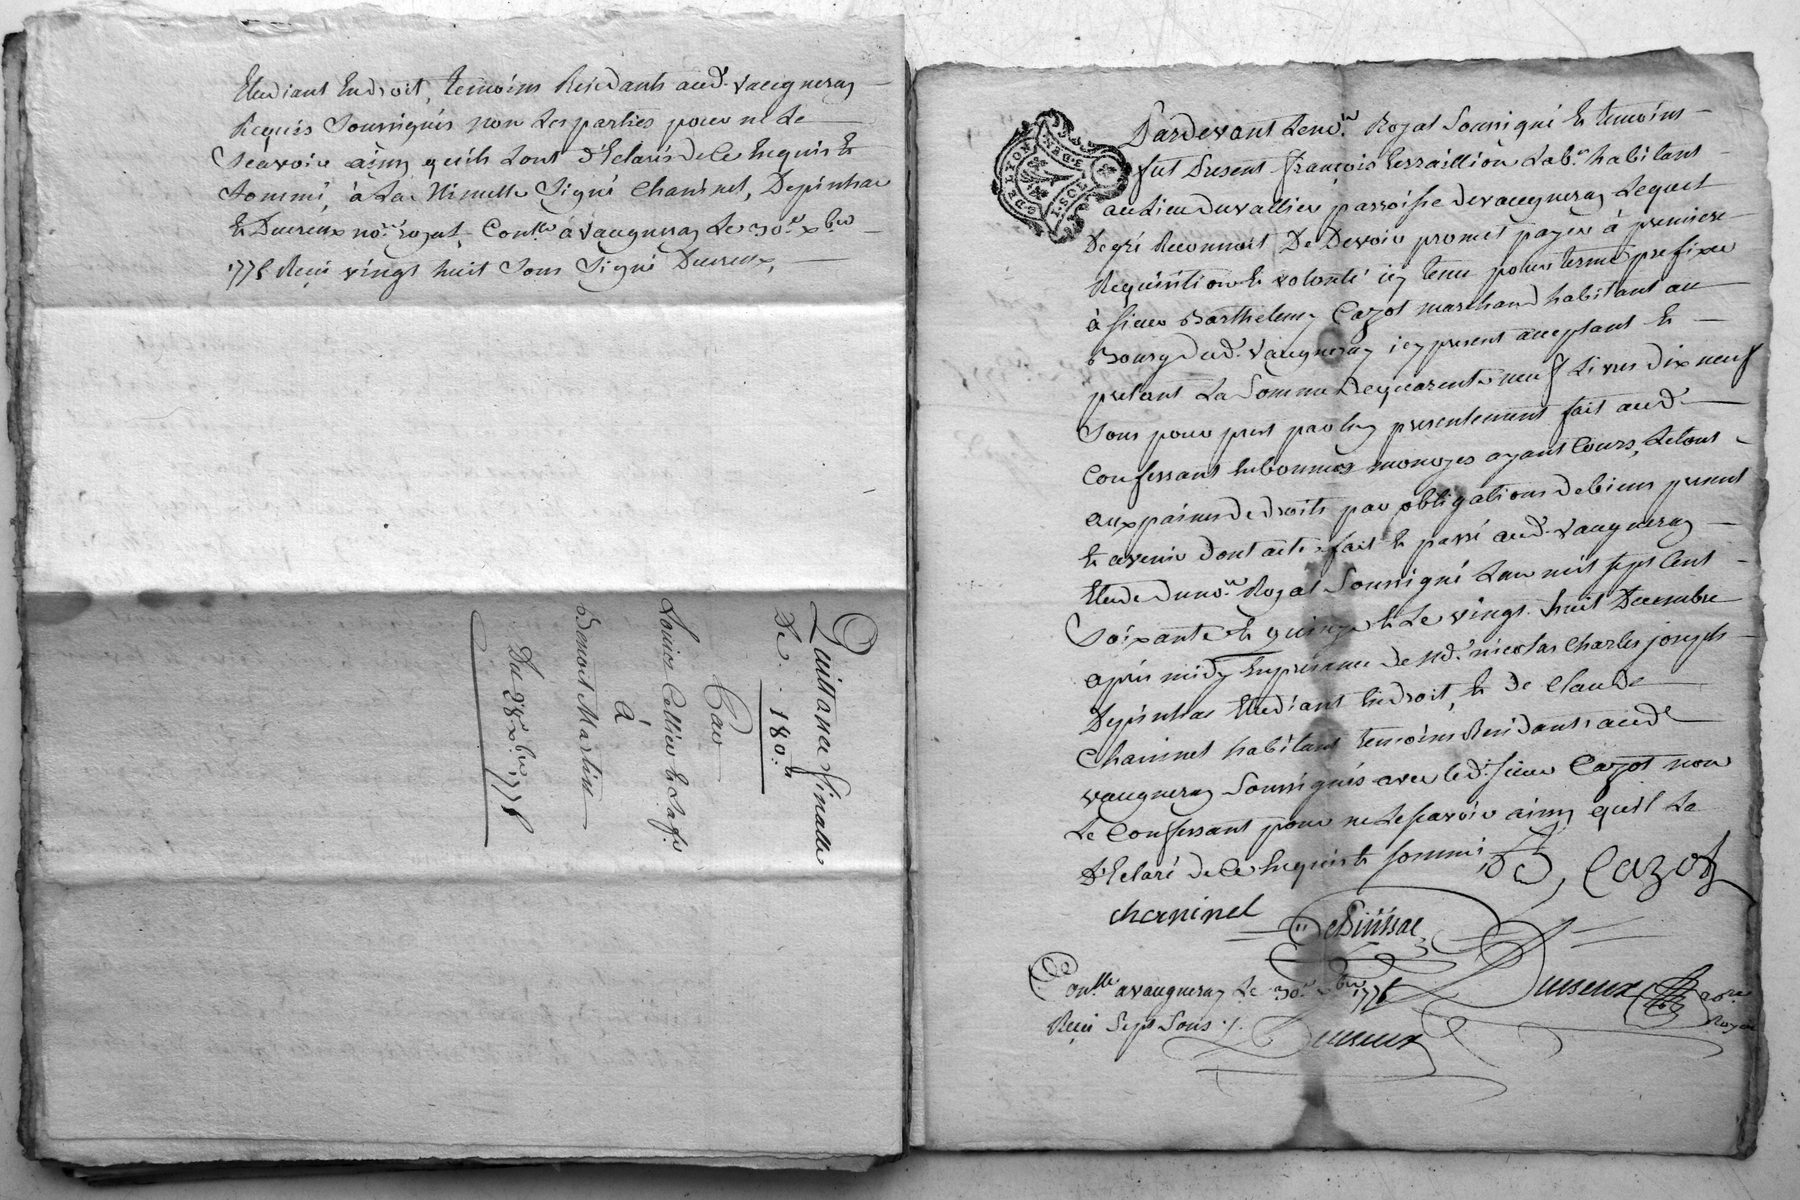 Etudiant En droit, temoins Residants aud.t vaugneray
Requis soussignés non Les parties pour ne Le
Scavoir ainsy quils Lont D'Eclarés de Ce Enquis Et
Sommé, à La Minutte Signé Chaninel, Depinhac
Et Ducreux no.re royal, Con.llé à vaugneray Le 30.e x.bre
1775 Reçu vingt huit Sous Signé Ducreux,
Quittance finalle
De . 180.#
Par
Louise Cellier Et
à
Benoit Martin
Du 28.e x.bre 1775
G. DE LYON
1. SOL
Pardevant Le no.re Royal Soussigné Et temoins
fut Present françois Lab.r habitant
au Lieu du vallier parroisse de vaugneray Lequel
De gré Reconnoit De Devoir promet payer à premiere
Requisition Et volonté icy tenu pour terme prefixe
à sieur Barthelemy Cazot marchand habitant au
Bourg dud.t vaugneray icy present acceptant Et
pretant La Somme De quarente neuf Livres dix neuf
Sous pour pret par Luy presentement fait aud.t
Confessant En bonnes monoyes ayant Cours, Le tout
aux paines de droits par obligations de biens present
Et avenir dont acte, fait Et passé aud.t vaugneray
Etude du no.re Royal Soussigné L'an mil sept Cent
Soixante Et quinze Et Le vingt huit Decembre
après midy En presence de M.d nicolas Charles joseph
Depinhac Etudiant En droit, Et De Claude
Chaninel habitant temoins Residants aud.t
vaugneray Soussignés avec led.t sieur Cazot non
Le Confessant pour ne Le scavoir ainsy qu'il La
D'Eclaré de Ce Enquis Et sommé
B, Cazot
chaninel
Depinhac
Ducreux no.re Royal
Con.llé a vaugneray Le 30.e x.bre 1775
Reçu Sept Sous ./.
Ducreux